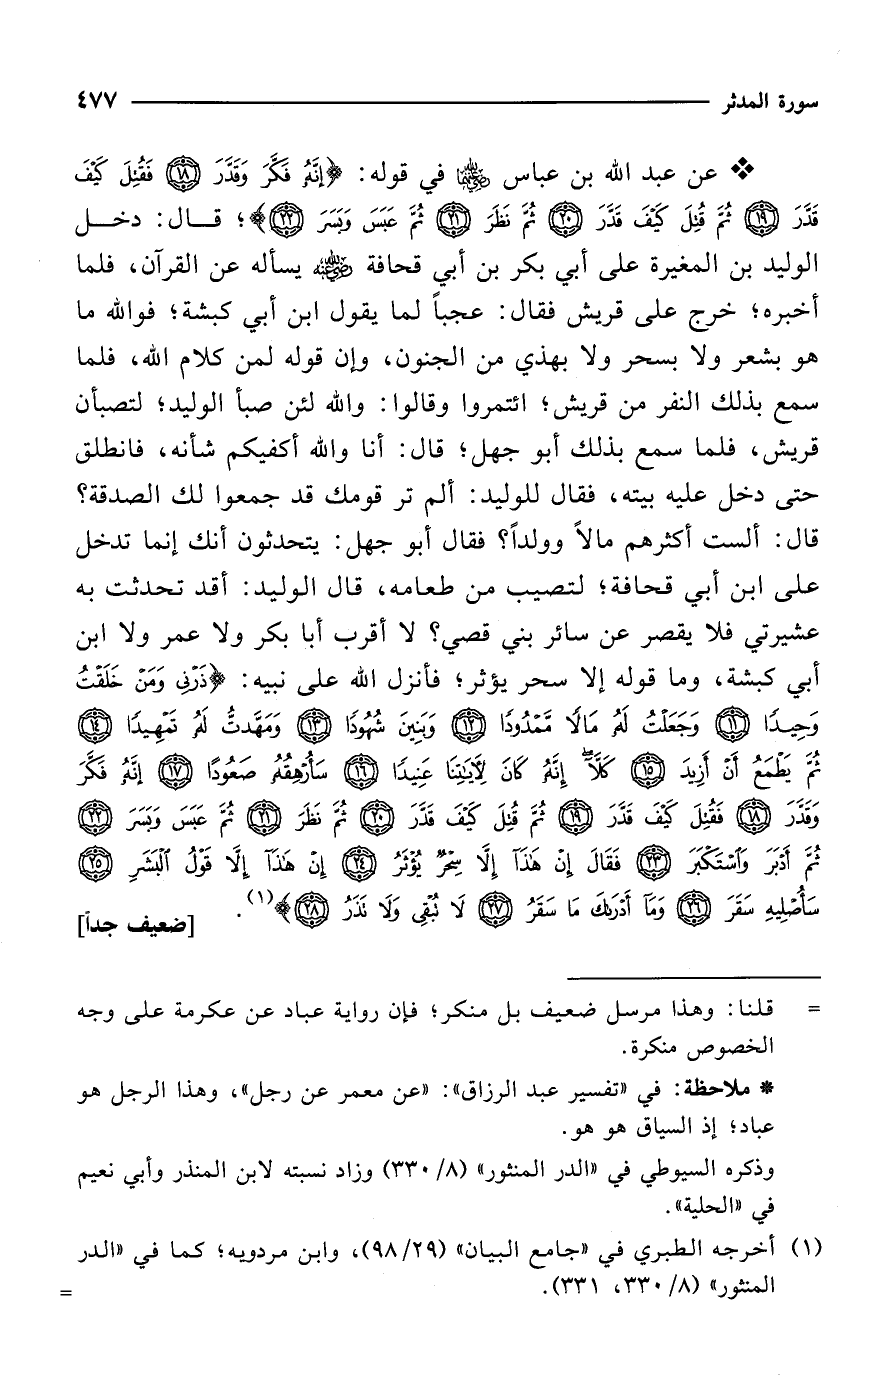 سورة المدثر ٤٧٧
❖ عن عبد الله بن عباس ﷺ في قوله: ﴿إِنَّهُ فَكَّرَ وَقَدَّرَ ۝١٨ فَقُتِلَ كَيْفَ
قَدَّرَ ۝١٩ ثُمَّ قُتِلَ كَيْفَ قَدَّرَ ۝٢٠ ثُمَّ نَظَرَ ۝٢١ ثُمَّ عَبَسَ وَبَسَرَ ۝٢٢﴾؛ قــال: دخــل
الوليد بن المغيرة على أبي بكر بن أبي قحافة يسأله عن القرآن، فلما
أخبره؛ خرج على قريش فقال: عجباً لما يقول ابن أبي كبشة؛ فوالله ما
هو بشعر ولا بسحر ولا بهذي من الجنون، وإن قوله لمن كلام الله، فلما
سمع بذلك النفر من قريش؛ ائتمروا وقالوا: والله لئن صبأ الوليد؛ لتصبأن
قريش، فلما سمع بذلك أبو جهل؛ قال: أنا والله أكفيكم شأنه، فانطلق
حتى دخل عليه بيته، فقال للوليد: ألم تر قومك قد جمعوا لك الصدقة؟
قال: ألست أكثرهم مالاً وولداً؟ فقال أبو جهل: يتحدثون أنك إنما تدخل
على ابن أبي قحافة؛ لتصيب من طعامه، قال الوليد: أقد تحدثت به
عشيرتي فلا يقصر عن سائر بني قصي؟ لا أقرب أبا بكر ولا عمر ولا ابن
أبي كبشة، وما قوله إلا سحر يؤثر؛ فأنزل الله على نبيه: ﴿ذَرْنِي وَمَنْ خَلَقْتُ
وَحِيدًا ۝١١ وَجَعَلْتُ لَهُ مَالًا مَّمْدُودًا ۝١٢ وَبَنِينَ شُهُودًا ۝١٣ وَمَهَّدتُّ لَهُ تَمْهِيدًا ۝١٤
ثُمَّ يَطْمَعُ أَنْ أَزِيدَ ۝١٥ كَلَّا إِنَّهُ كَانَ لِآيَاتِنَا عَنِيدًا ۝١٦ سَأُرْهِقُهُ صَعُودًا ۝١٧ إِنَّهُ فَكَّرَ
وَقَدَّرَ ۝١٨ فَقُتِلَ كَيْفَ قَدَّرَ ۝١٩ ثُمَّ قُتِلَ كَيْفَ قَدَّرَ ۝٢٠ ثُمَّ نَظَرَ ۝٢١ ثُمَّ عَبَسَ وَبَسَرَ ۝٢٢
ثُمَّ أَدْبَرَ وَاسْتَكْبَرَ ۝٢٣ فَقَالَ إِنْ هَذَا إِلَّا سِحْرٌ يُؤْثَرُ ۝٢٤ إِنْ هَذَا إِلَّا قَوْلُ الْبَشَرِ ۝٢٥
سَأُصْلِيهِ سَقَرَ ۝٢٦ وَمَا أَدْرَاكَ مَا سَقَرُ ۝٢٧ لَا تُبْقِي وَلَا تَذَرُ ۝٢٨﴾(١). [ضعيف جداً]
= قلنا: وهذا مرسل ضعيف بل منكر؛ فإن رواية عباد عن عكرمة على وجه
الخصوص منكرة.
* ملاحظة: في «تفسير عبد الرزاق»: «عن معمر عن رجل»، وهذا الرجل هو
عباد؛ إذ السياق هو هو.
وذكره السيوطي في «الدر المنثور» (٨/ ٣٣٠) وزاد نسبته لابن المنذر وأبي نعيم
في «الحلية».
(١) أخرجه الطبري في «جامع البيان» (٢٩/ ٩٨)، وابن مردويه؛ كما في «الدر
المنثور» (٨/ ٣٣٠، ٣٣١). =